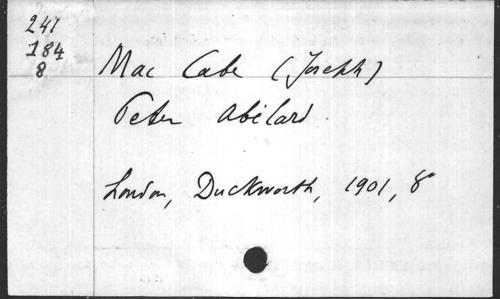 247
184
8
Mac Cabe (Joseph)
Peter Abélard.
London, Duckworth, 1901, 8°